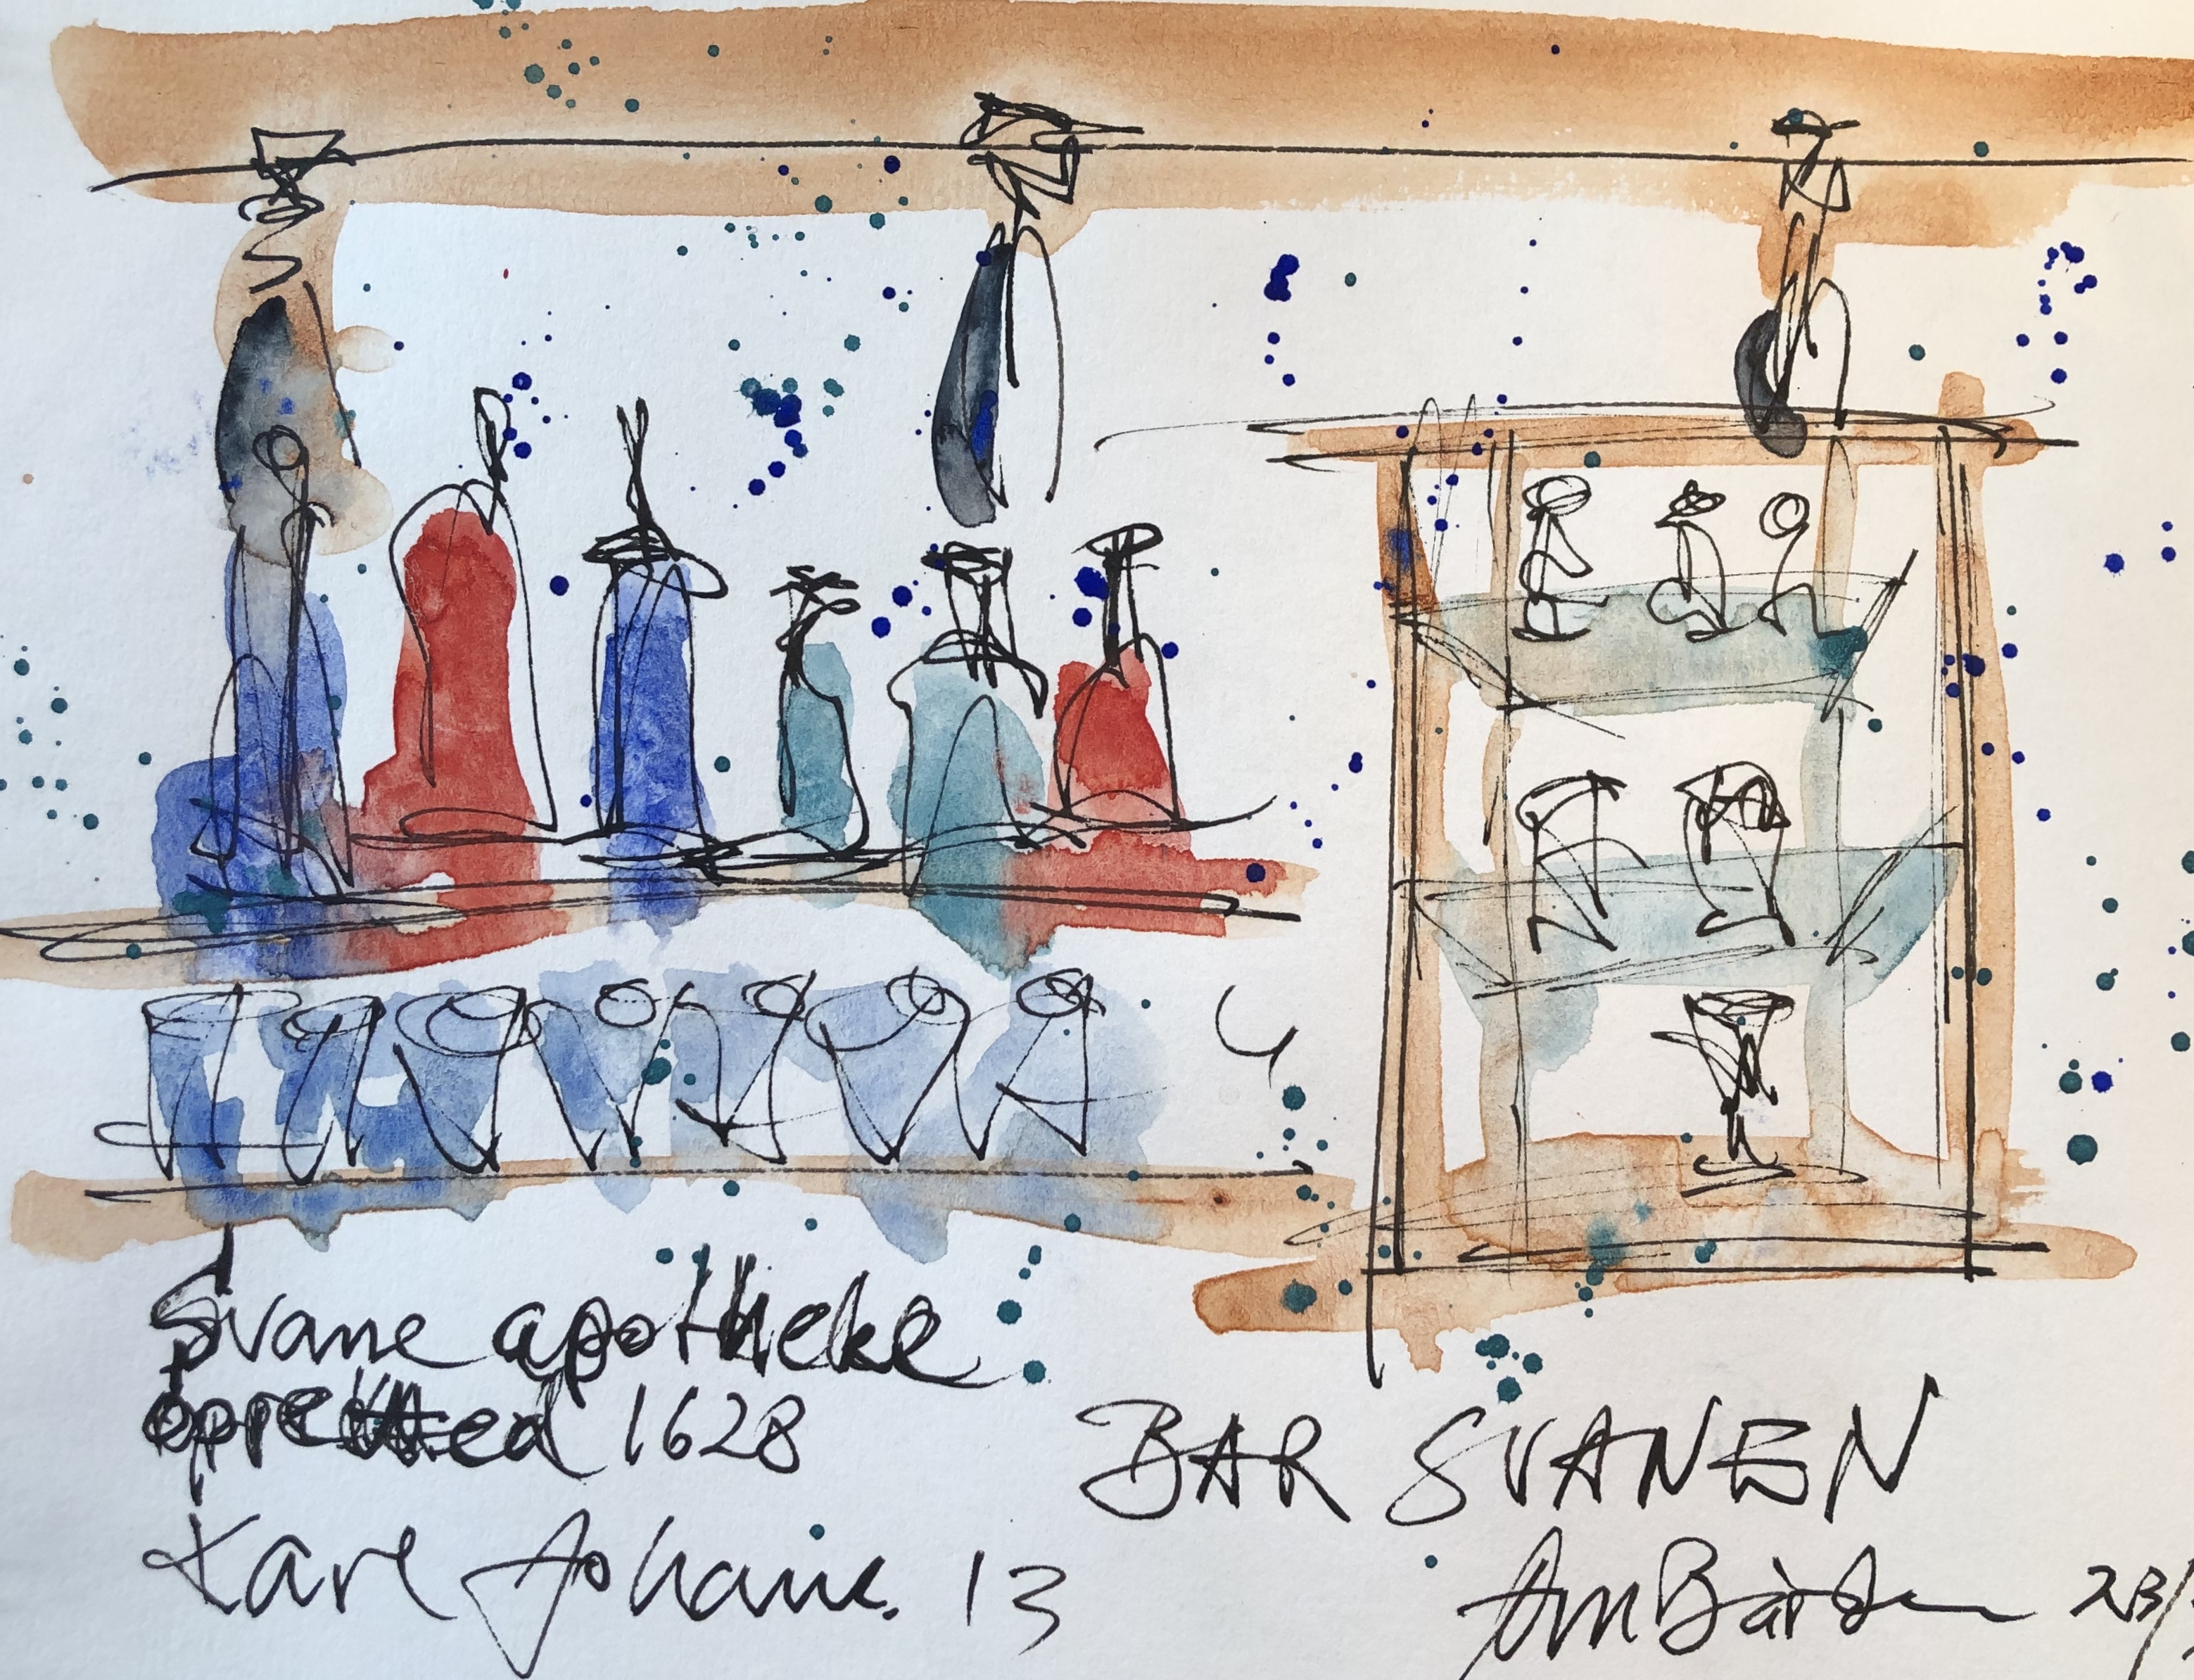 Svane apotheke
oppretted 1628
Karl Johans. 13
BAR SVANEN
23/